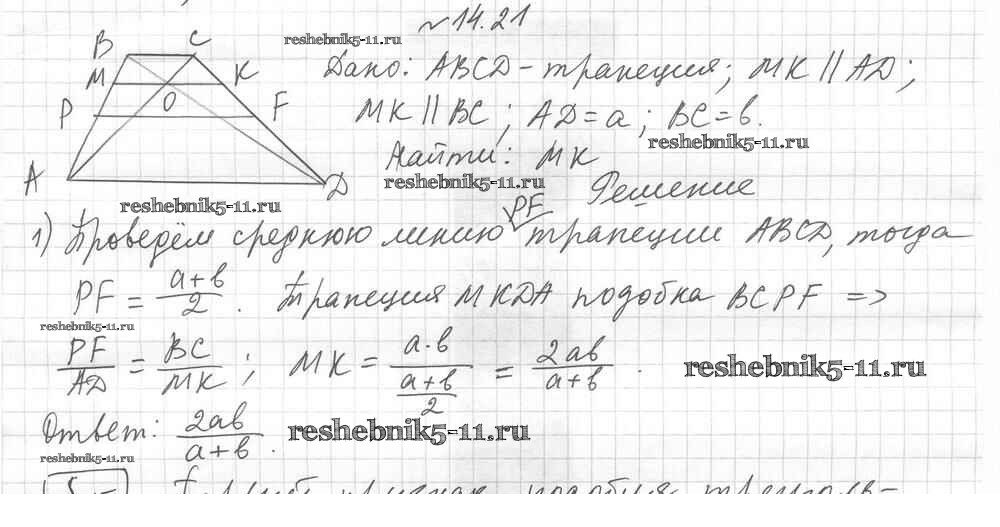 №14.21
reshebnik5-11.ru
B C
M K
O
P F
A D
Дано: ABCD - трапеция; MK || AD;
MK || BC; AD = a; BC = b.
reshebnik5-11.ru
Найти: MK
reshebnik5-11.ru
Решение
reshebnik5-11.ru
1) Проведём среднюю линию PF трапеции ABCD, тогда
PF = (a+b)/2. Трапеция MKDA подобна BCPF =>
reshebnik5-11.ru
PF/AD = BC/MK; MK = a·b/((a+b)/2) = 2ab/(a+b).
reshebnik5-11.ru
Ответ: 2ab/(a+b).
reshebnik5-11.ru
reshebnik5-11.ru